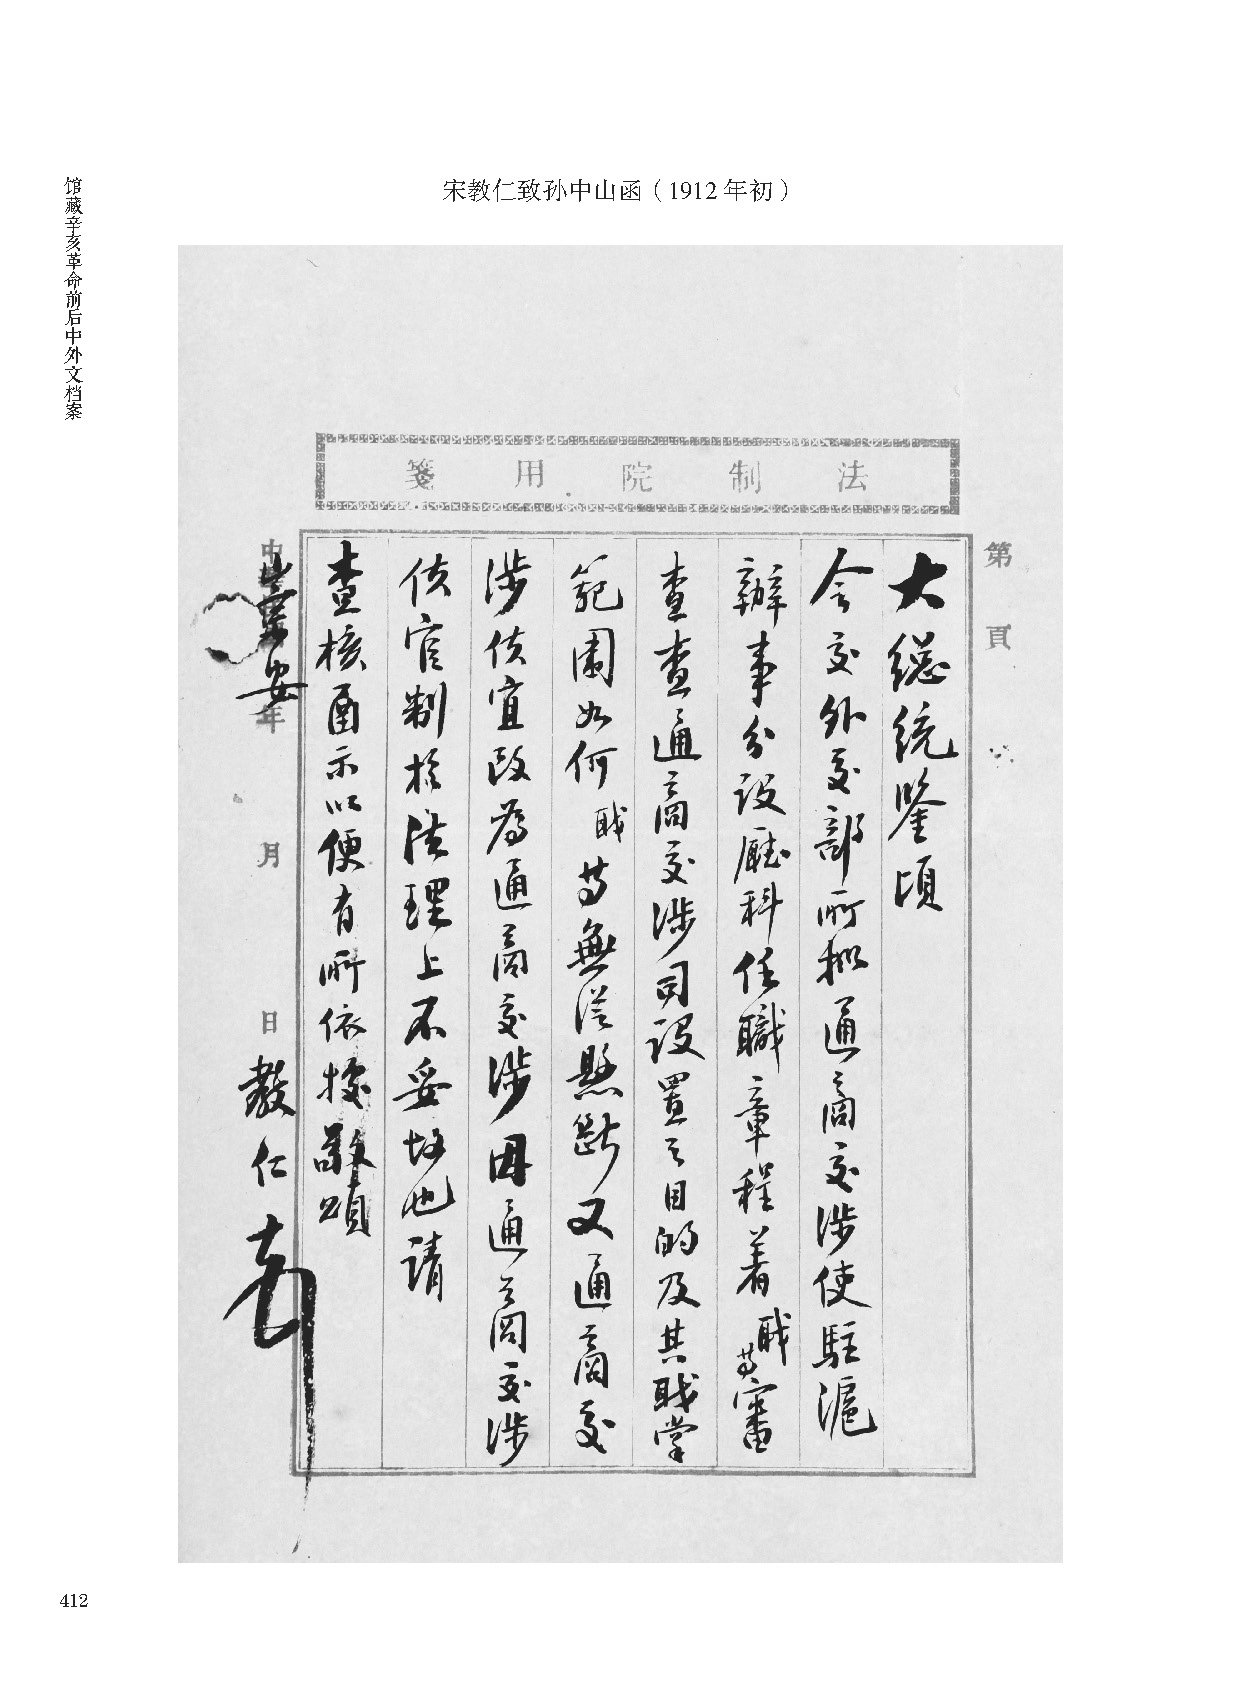 宋教仁致孙中山函（1912年初）
馆藏辛亥革命前后中外文档案
法制院用箋
第 頁
大總統鑒頃
令交外交部所擬通商交涉使駐滬
辦事分設廳科任職章程着職等審
查查通商交涉司設置之目的及其職掌
範圍如何職等無從懸斷又通商交
涉使宜改為通商交涉司通商交涉
使官制於法理上不妥故也請
查核函示以便有所依據敬頌
崇安
年 月 日
教仁
412